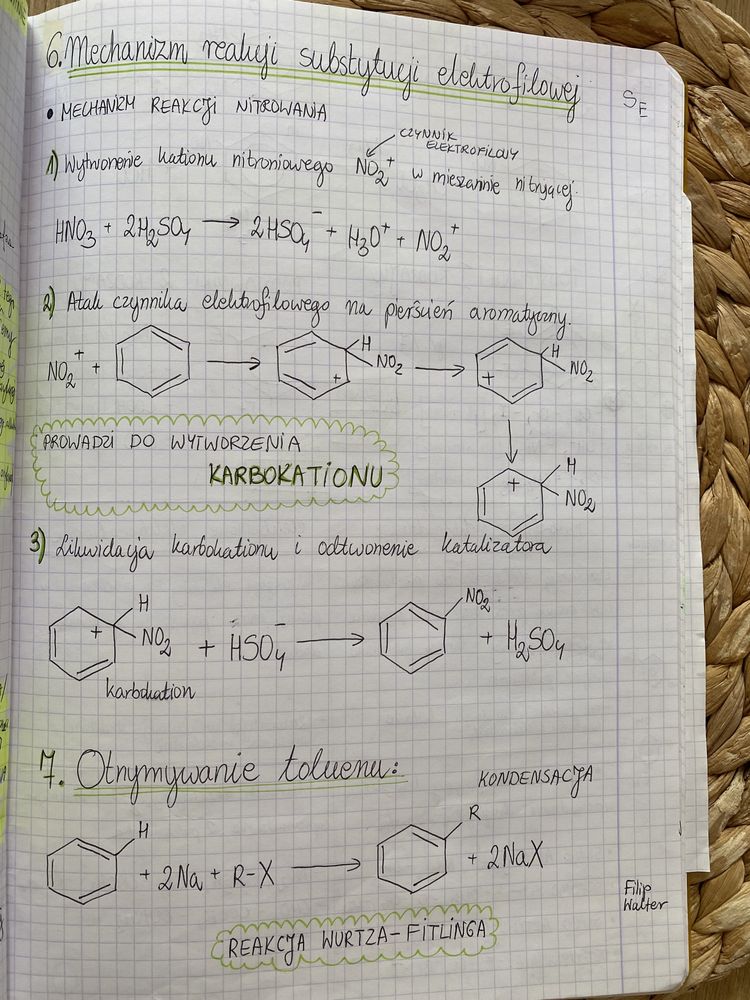 6. Mechanizm reakcji substytucji elektrofilowej SE
• MECHANIZM REAKCJI NITROWANIA
CZYNNIK
ELEKTROFILOWY
1) Wytworzenie kationu nitroniowego NO₂⁺ w mieszaninie nitrującej.
HNO₃ + 2H₂SO₄ → 2HSO₄⁻ + H₃O⁺ + NO₂⁺
2) Atak czynnika elektrofilowego na pierścień aromatyczny.
NO₂⁺ + → H NO₂ + → H NO₂ +
↓
PROWADZI DO WYTWORZENIA
KARBOKATIONU
H NO₂ +
3) Likwidacja karbokationu i odtworzenie katalizatora
H NO₂ + + HSO₄⁻ → NO₂ + H₂SO₄
karbokation
7. Otrzymywanie toluenu:
KONDENSACJA
H + 2Na + R-X → R + 2NaX
REAKCJA WURTZA-FITLINGA
Filip
Walter